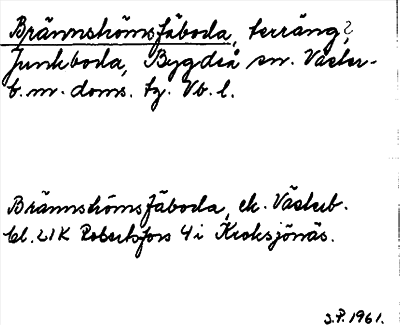 Brännströmsfäboda, terräng?
Junkboda, Bygdeå sn. Väster-
b.m. doms. tg. Vb. l.
Brännströmsfäboda, ek. Västerb.
bl. 21K Robertsfors 4 i Kroksjönäs.
S.P. 1961.